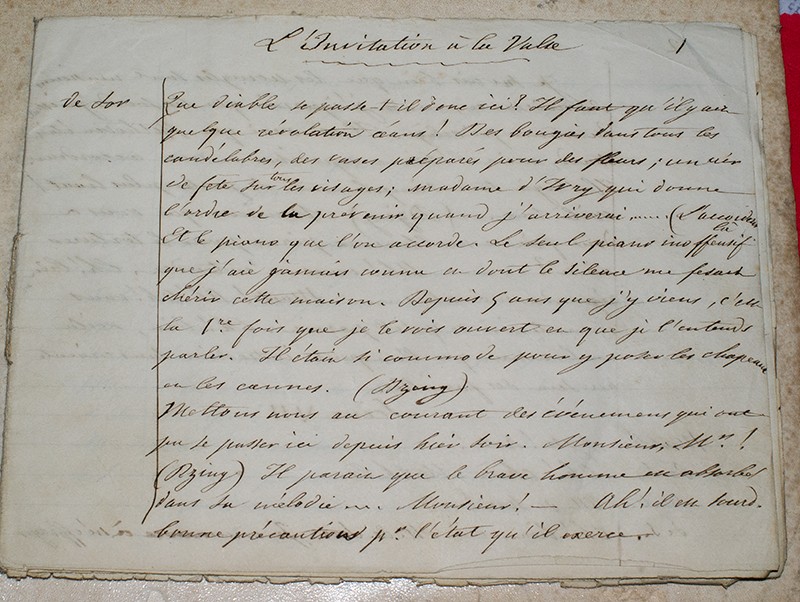 L'Invitation à la Valse
1
de Sor
Que diable se passe-t-il donc ici? Il faut qu'il y ait
quelque révolation céans! Des bougies dans tous les
candélabres, des vases préparés pour des fleurs; un air
de fête sur tous les visages; madame d'Ivry qui donne
l'ordre de la prévenir quand j'arriverai..... (L'accordeur
Et le piano que l'on accorde. Le seul piano inoffensif
que j'aie jamais connu et dont le silence me fesait
chérir cette maison. Depuis 5 ans que j'y viens, c'est
la 1re fois que je le vois ouvert et que je l'entends
parler. Il était si commode pour y poser les chapeaux
et les cannes. (Dzing)
Mettons nous au courant des événemens qui ont
pu se passer ici depuis hier soir. Monsieur, Mr!
(Dzing) Il parait que le brave homme est absorbé
dans sa mélodie.... Monsieur! — Ah! il est sourd-
bonne précaution pr l'état qu'il exerce.